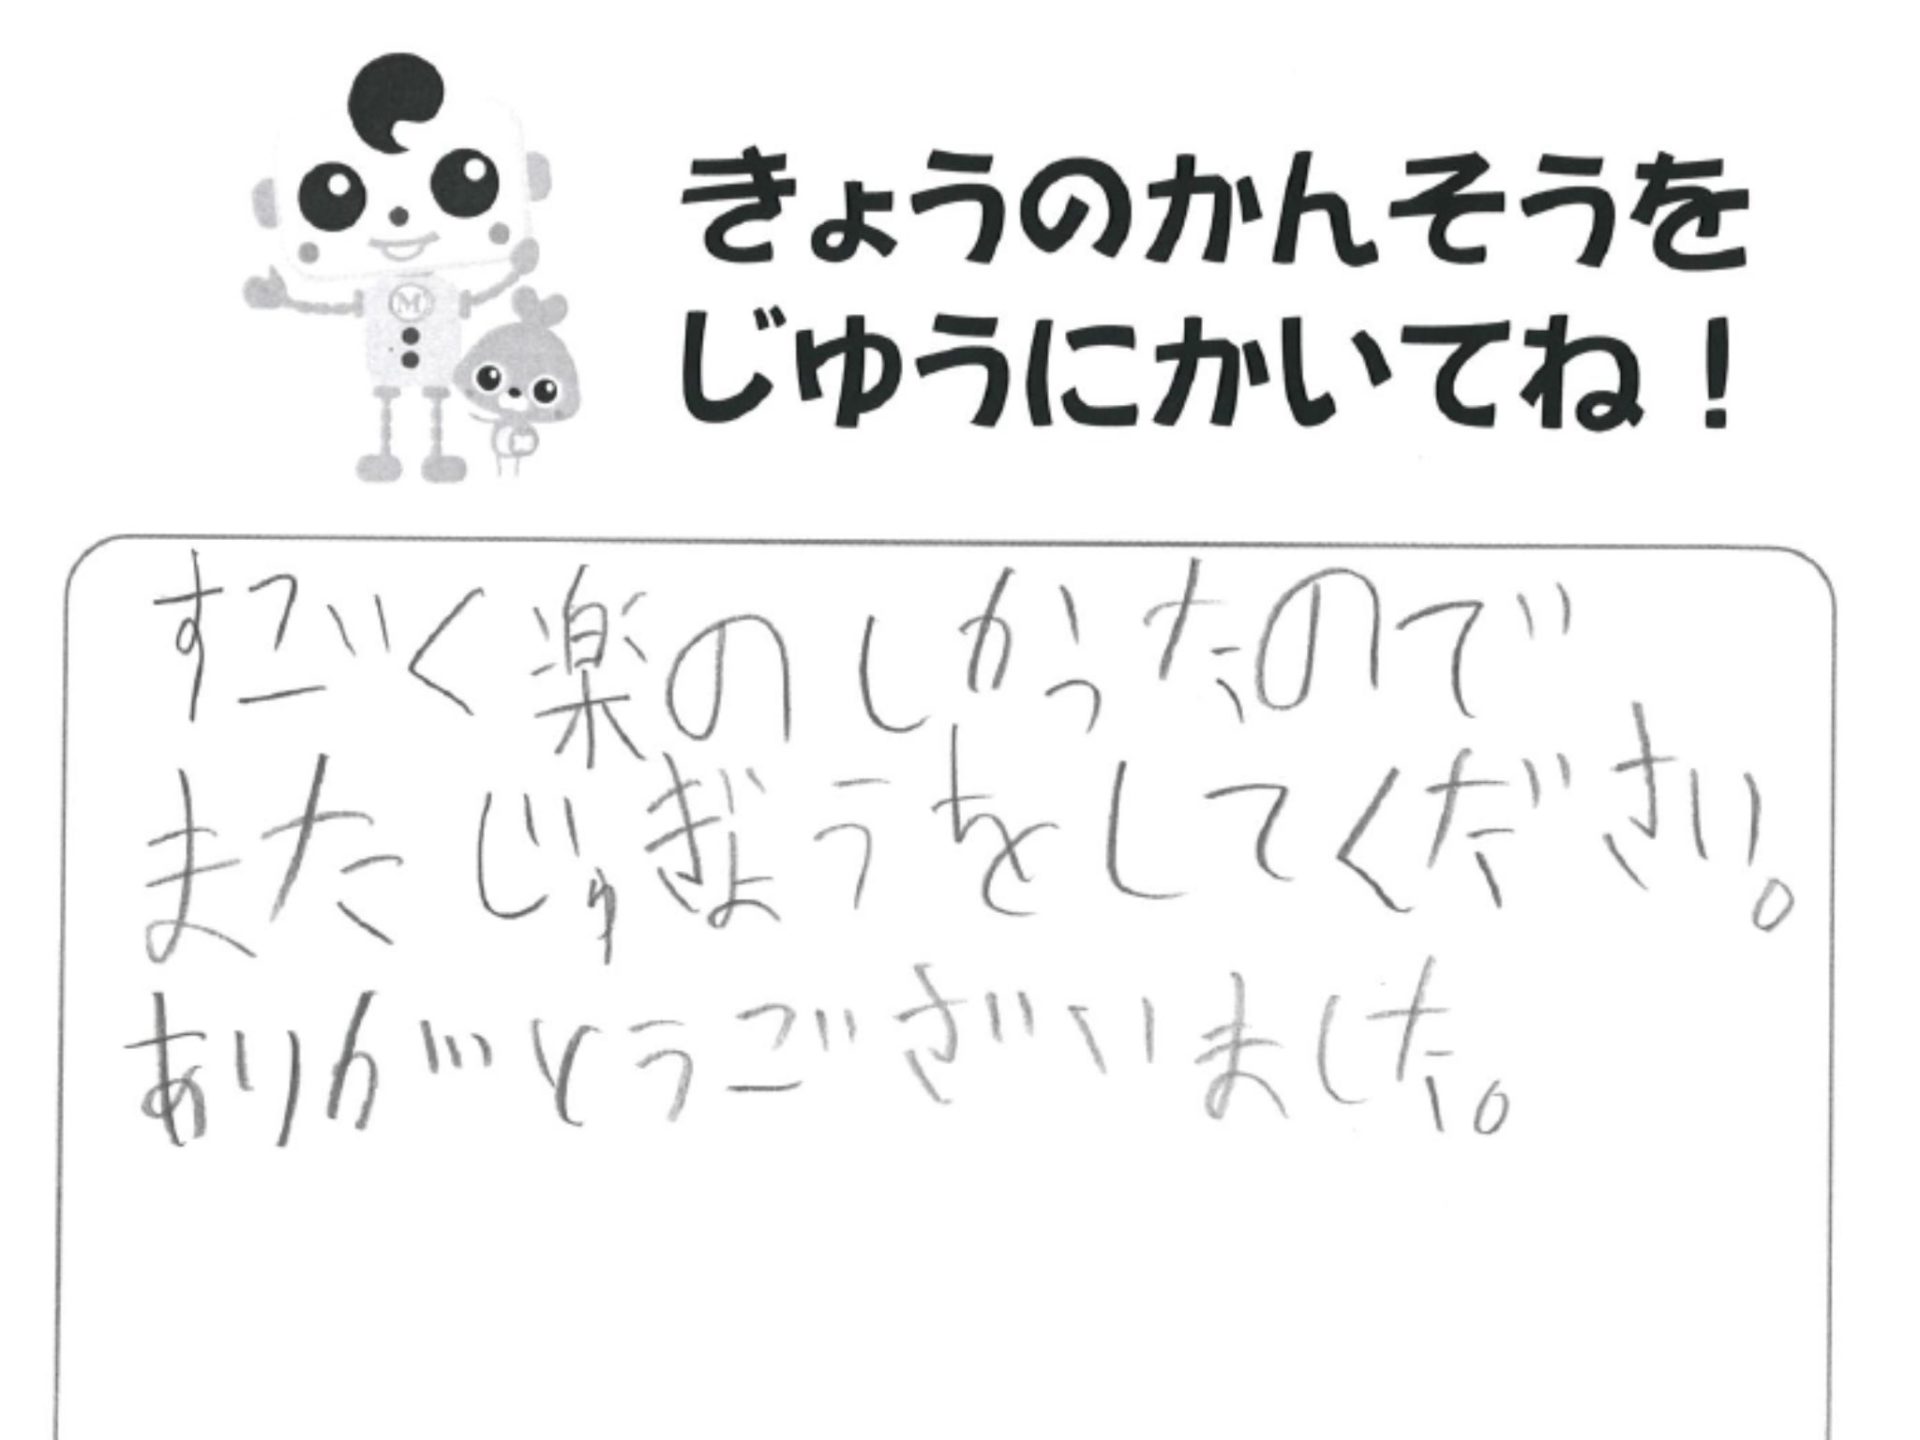 きょうのかんそうを
じゆうにかいてね！
M
すごく楽のしかったので
またじゅぎょうをしてください。
ありがとうございました。